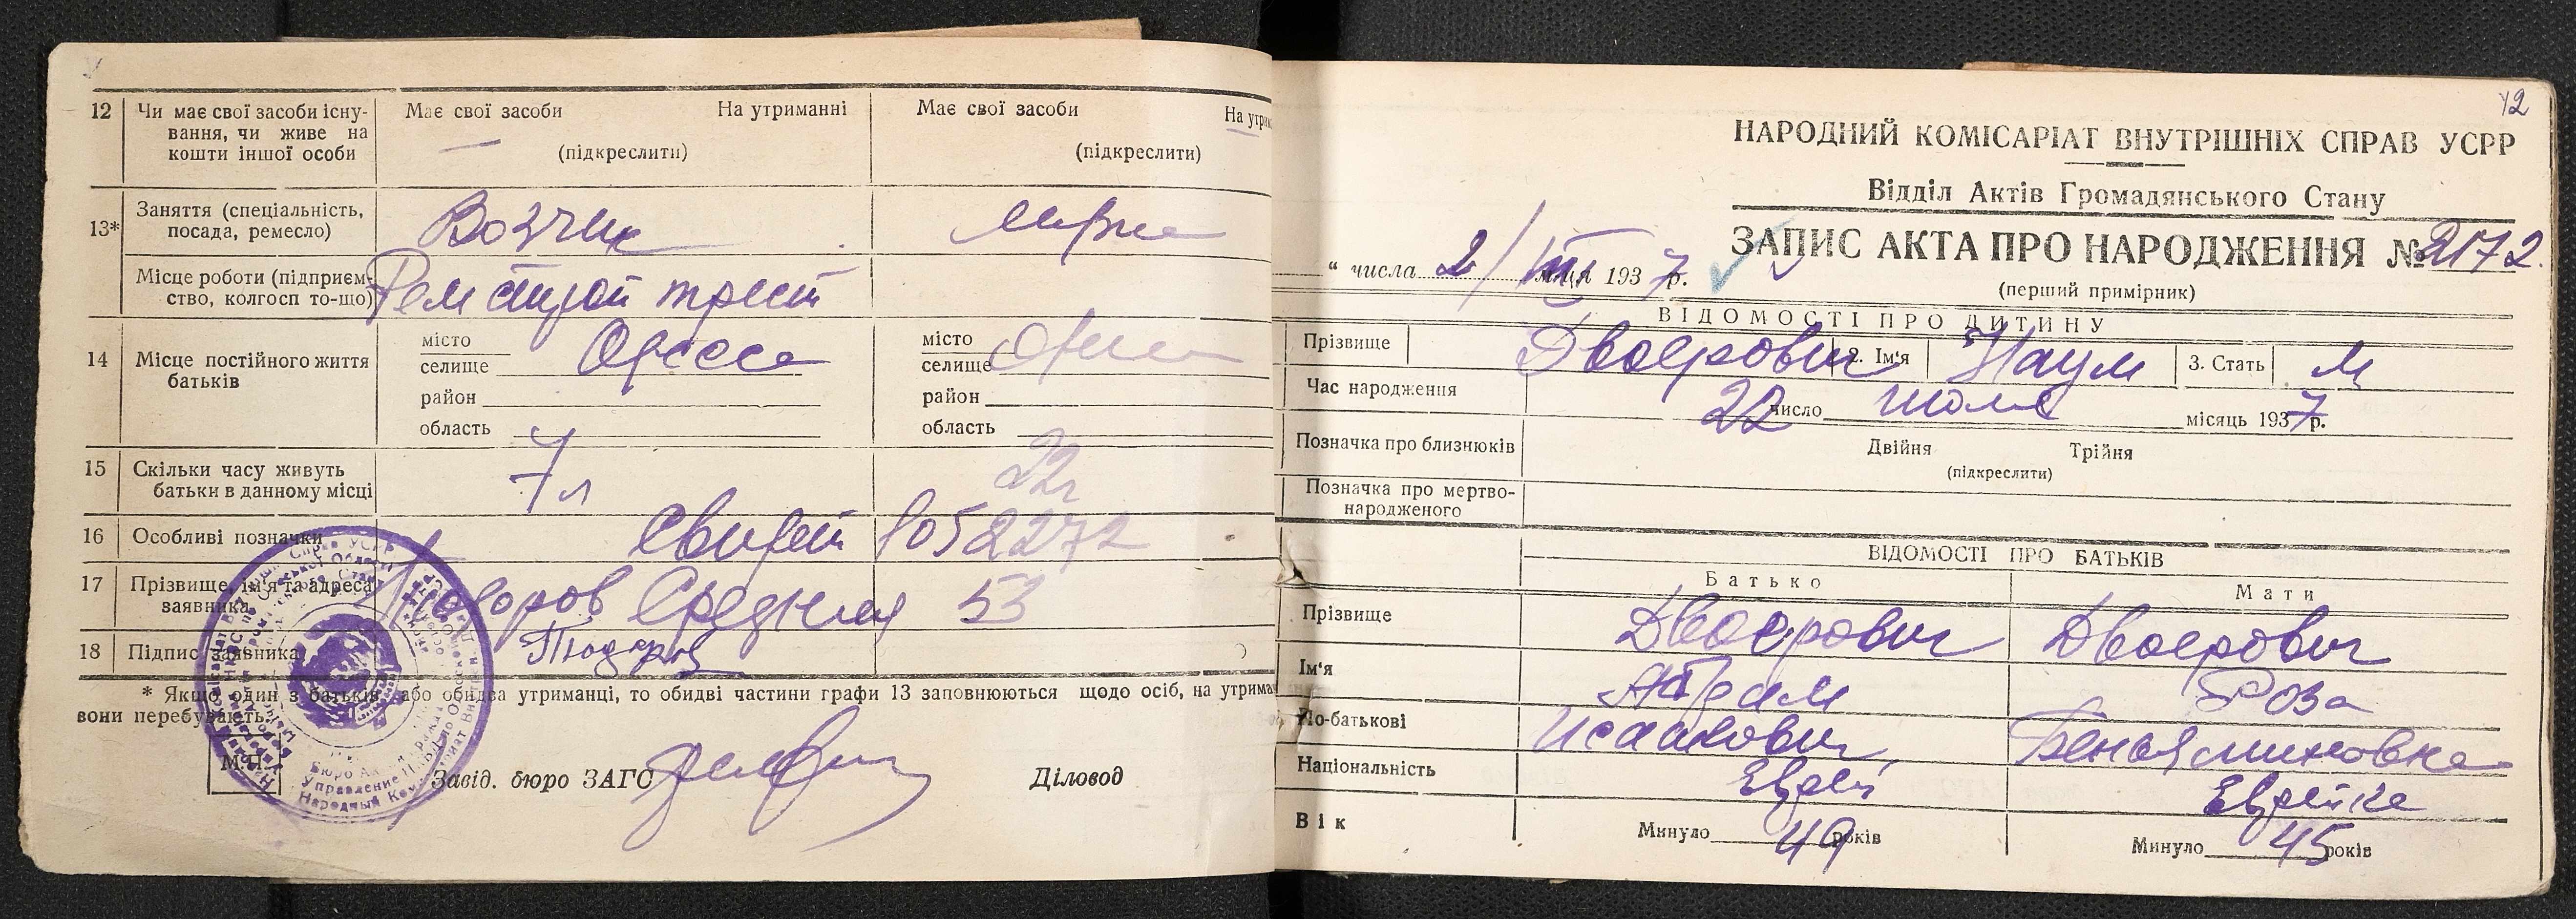 12 Чи має свої засоби існу-
вання, чи живе на
кошти іншої особи
Має свої засоби На утриманні
(підкреслити)
Має свої засоби На утрим
(підкреслити)
13* Заняття (спеціальність,
посада, ремесло)
Возчик
Місце роботи (підприєм-
ство, колгосп то-що)
Ремстрой трест
14 Місце постійного життя
батьків
місто
селище Одесса
район
область
місто
селище Одесса
район
область
15 Скільки часу живуть
батьки в данному місці
7 л
22 г
16 Особливі позначки
1052272
17 Прізвище, ім'я та адреса
заявника
Средняя 53
18 Підпис заявника
* Якщо один з батьків, або обидва утриманці, то обидві частини графи 13 заповнюються щодо осіб, на утрима
вони перебувають.
М.П. Завід. бюро ЗАГС Діловод
42
НАРОДНИЙ КОМІСАРІАТ ВНУТРІШНІХ СПРАВ УСРР
Відділ Актів Громадянського Стану
ЗАПИС АКТА ПРО НАРОДЖЕННЯ № 2172
“ числа 2/VIII м-ця 1937 р.
(перший примірник)
ВІДОМОСТІ ПРО ДИТИНУ
Прізвище Двоерович 2. Ім'я Наум 3. Стать м
Час народження 22 число июля місяць 1937 р.
Позначка про близнюків Двійня Трійня
(підкреслити)
Позначка про мертво-
народженого
ВІДОМОСТІ ПРО БАТЬКІВ
Батько Мати
Прізвище Двоерович Двоерович
Ім'я Абрам Роза
По-батькові Исаакович Беньяминовна
Національність Еврей Еврейка
Вік Минуло 49 років Минуло 45 років